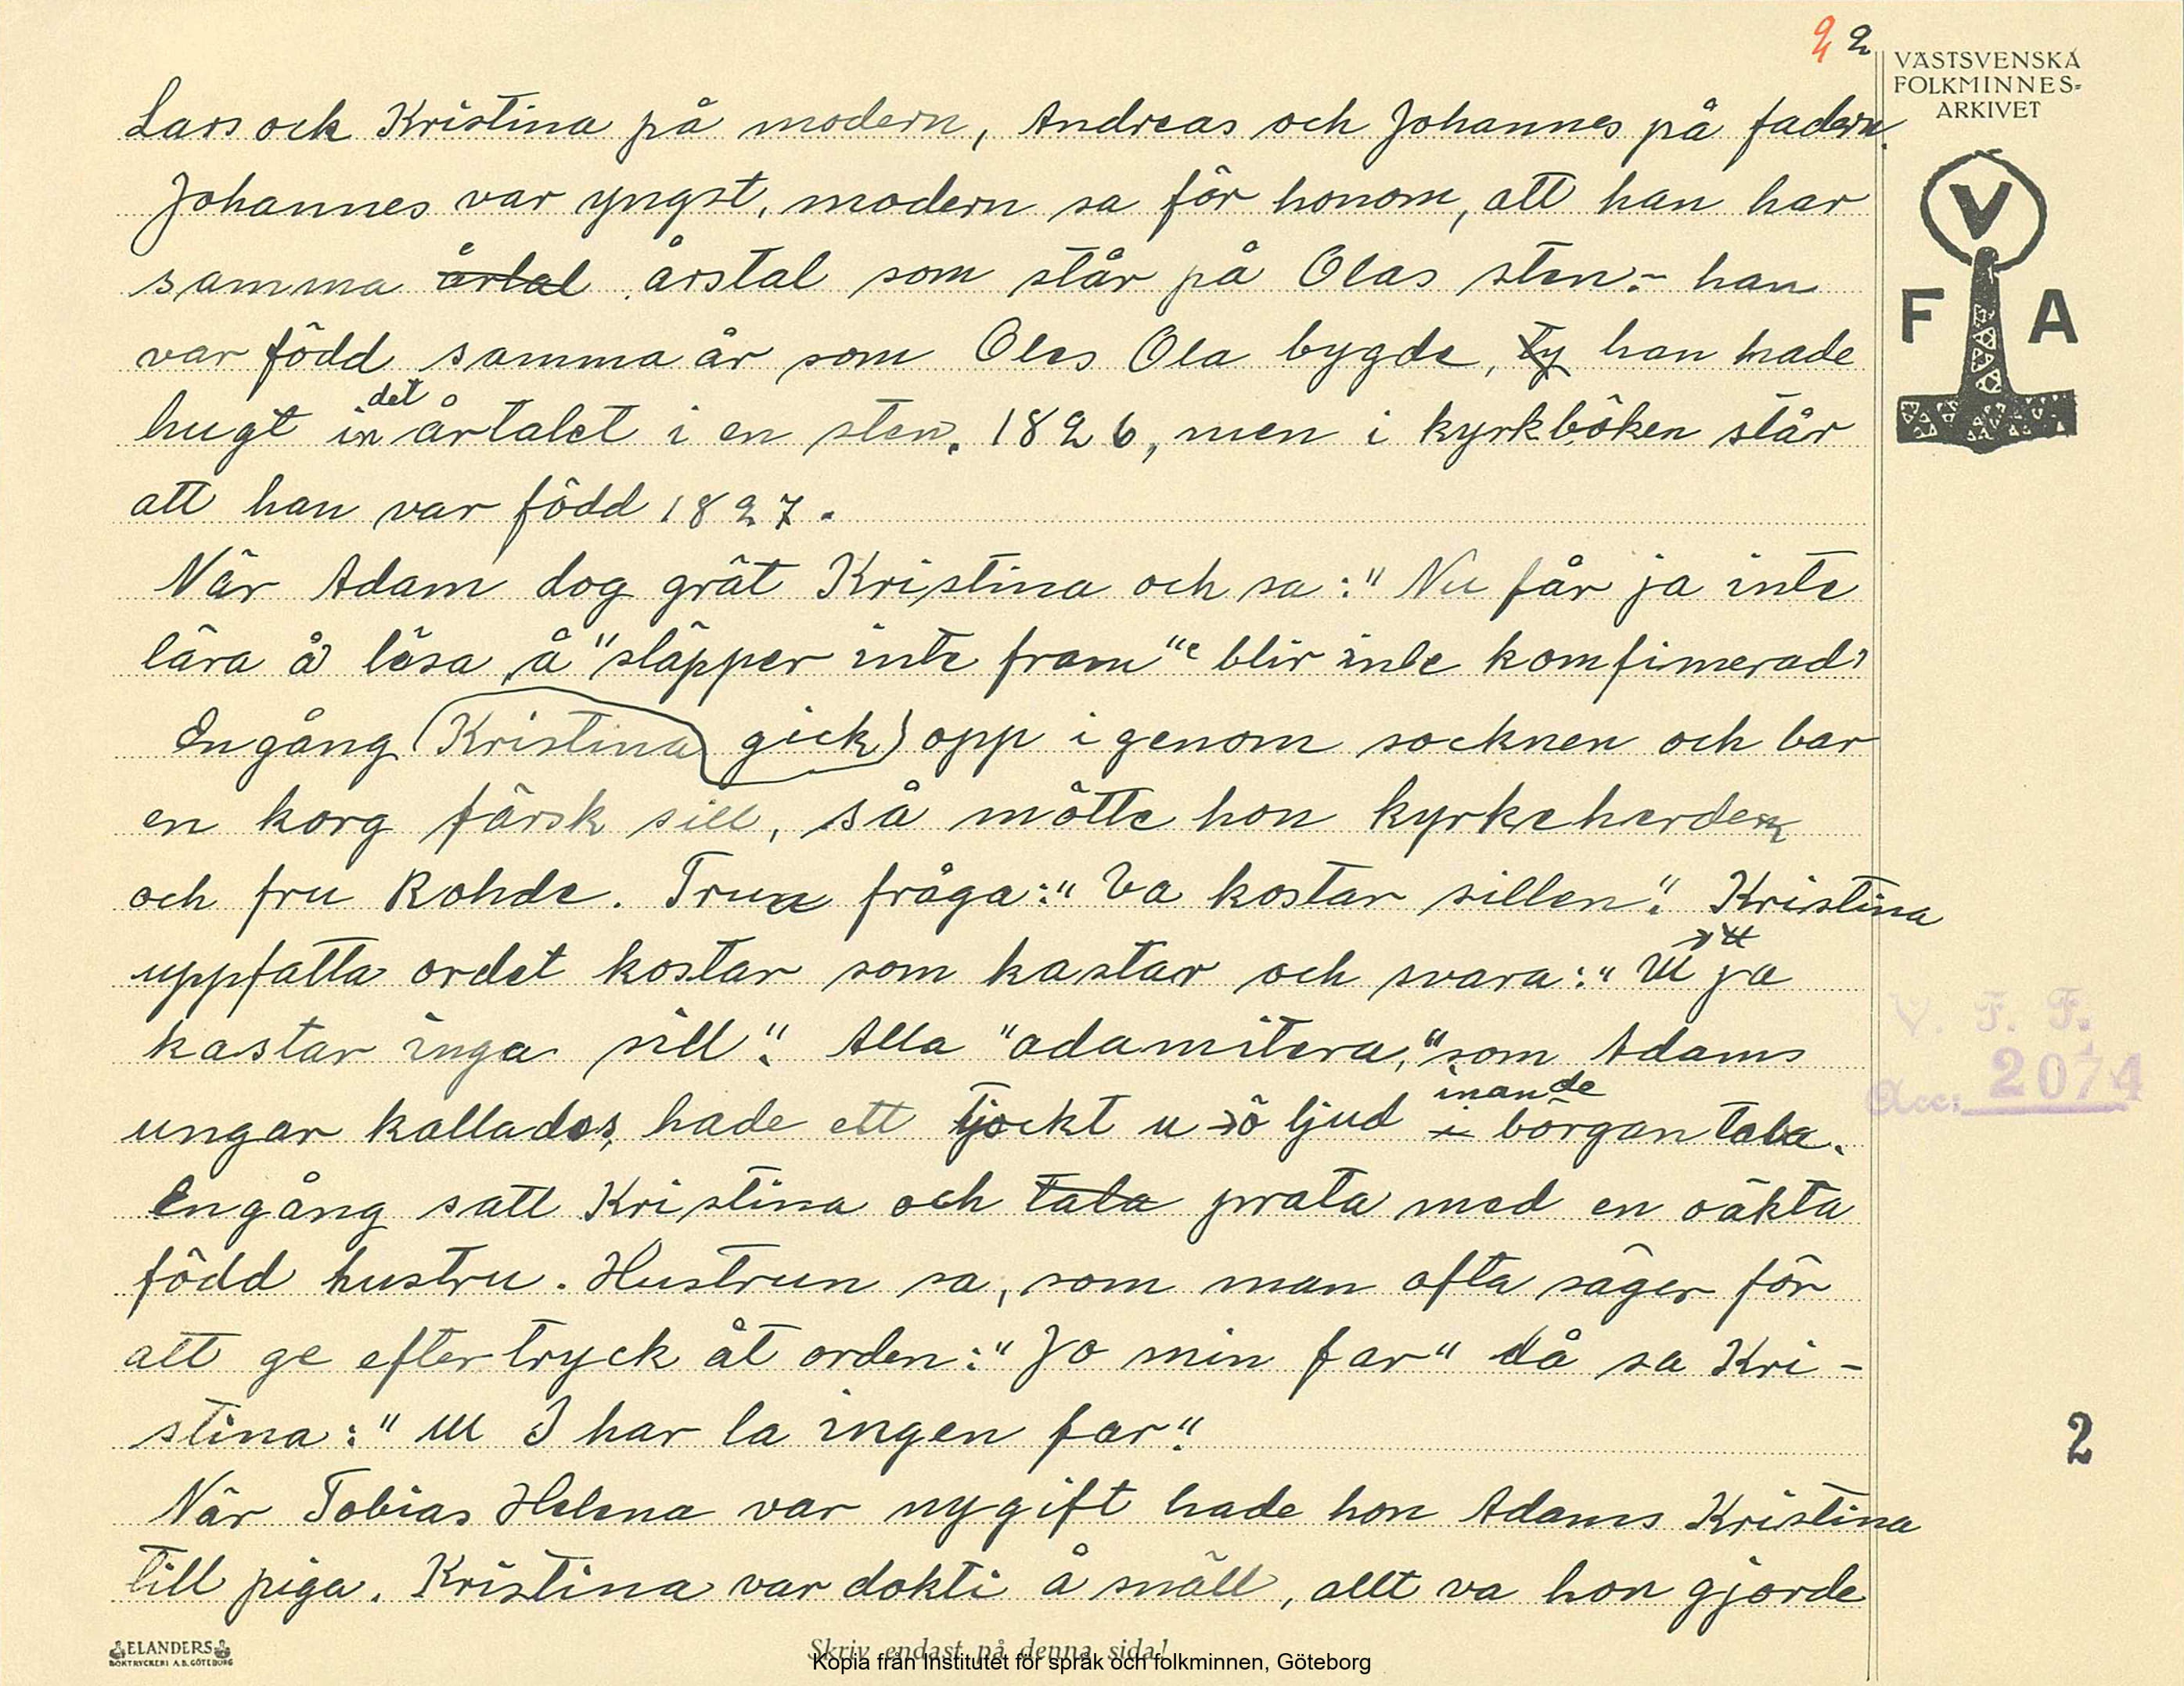 2 2
VÄSTSVENSKA
FOLKMINNES=
ARKIVET
V
F A
Lars ock Kristina på modern, Andreas och Johannes på fadern.
Johannes var yngst, modern sa för honom, att han har
samma årtal årstal som står på Olas sten.- han
var född samma år som Oles Ola bygde, ty han hade
hugt in det årtalet i en sten. 1826, men i kyrkböken står
att han var född 1827.
När Adam dog grät Kristina och sa:" Nu får ja inte
lära å läsa å "släpper inte fram"" blir inte komfimerad"
Engång (Kristina gick) opp igenom socknen och bar
en korg färsk sill, så mötte hon kyrkeherden
och fru Rohde. Frun fråga:" Va kostar sillen". Kristina
uppfatta ordet kostar som kastar och svara:" ja
kastar inga sill". Alla "adamitera," som Adams
ungar kallades, hade ett tjockt u ö ljud i inande börgan tala.
Engång satt Kristina och tala prata med en oäkta
född hustru. Hustrun sa, som man ofta säger för
att ge eftertryck åt orden:" Jo min far" då sa Kri-
stina:" I har la ingen far".
När Tobias Helena var nygift hade hon Adams Kristina
till piga. Kristina var dokti å snäll, allt va hon gjorde
V. F. F.
Acc: 2074
2
ELANDERS
BOKTRYCKERI A.B. GÖTEBORG
Skriv endast på denna sida!
Kopia från Institutet för språk och folkminnen, Göteborg